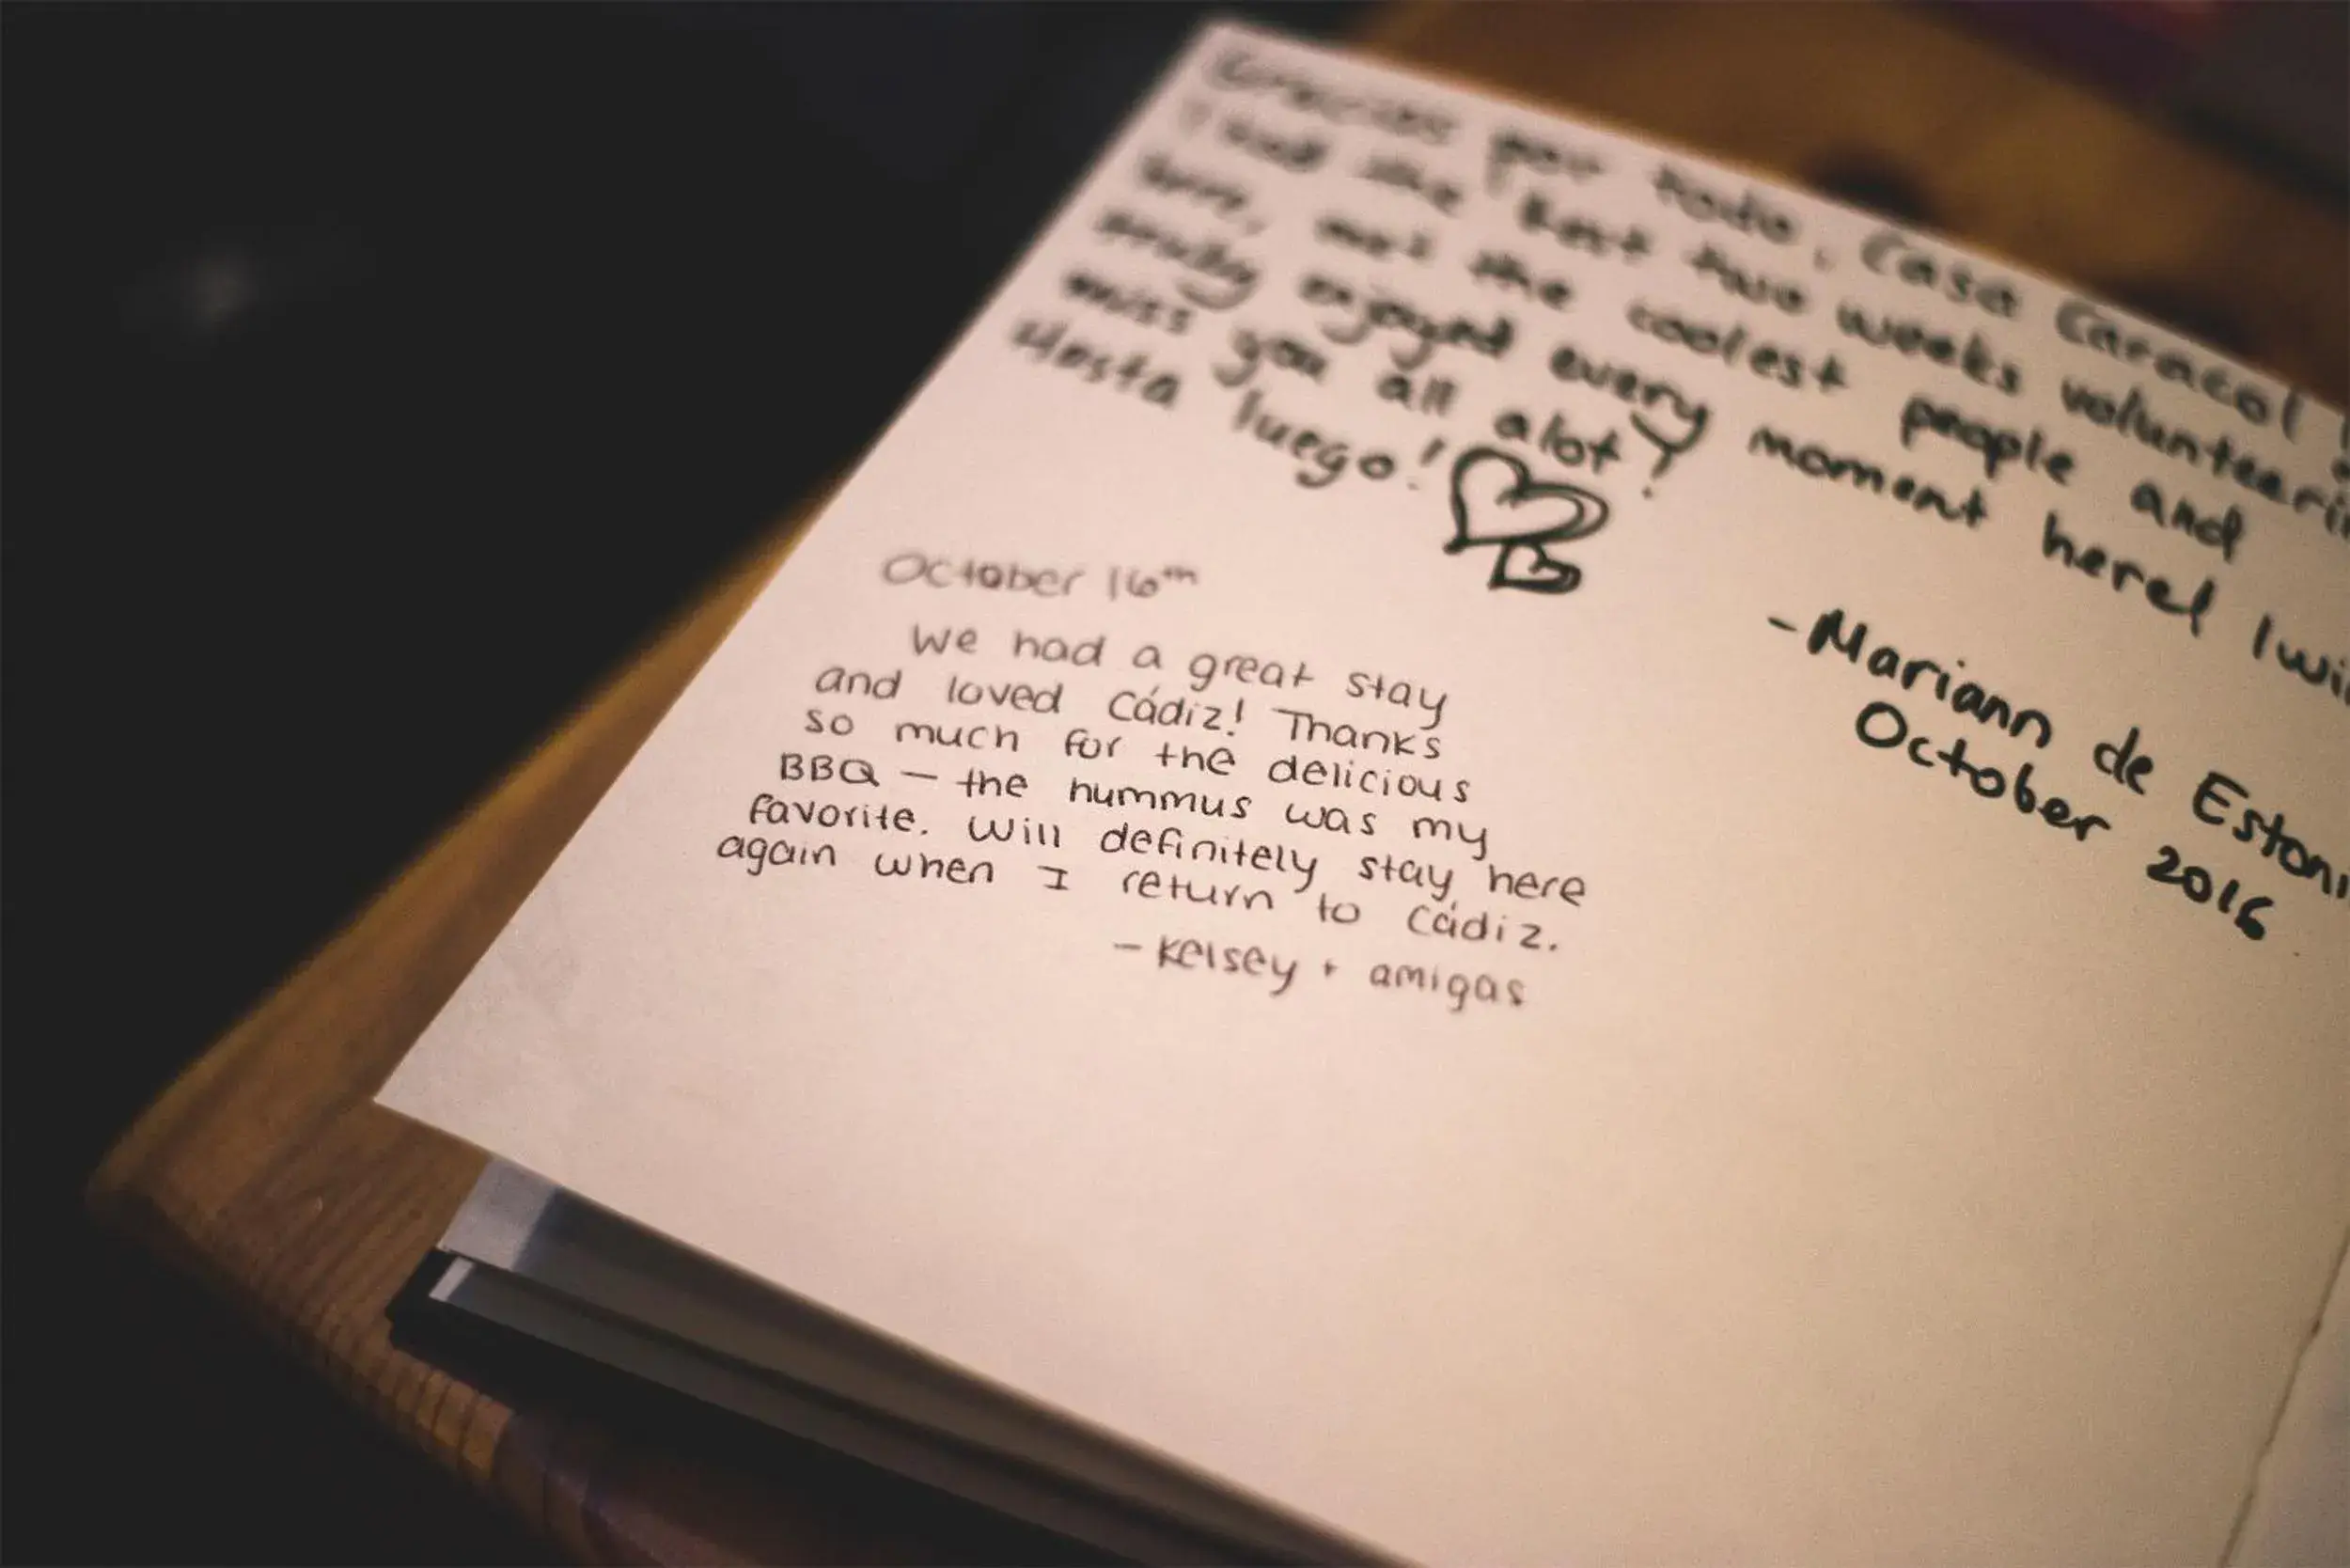 Gracias por todo, Casa Caracol!
I had the best two weeks volunteerin
here, met the coolest people and
really enjoyed every moment here! I wi
miss you all alot!
Hasta luego!
- Mariann de Estoni
October 2016
October 16th
We had a great stay
and loved Cádiz! Thanks
so much for the delicious
BBQ — the hummus was my
favorite. Will definitely stay here
again when I return to Cádiz.
- Kelsey + amigas